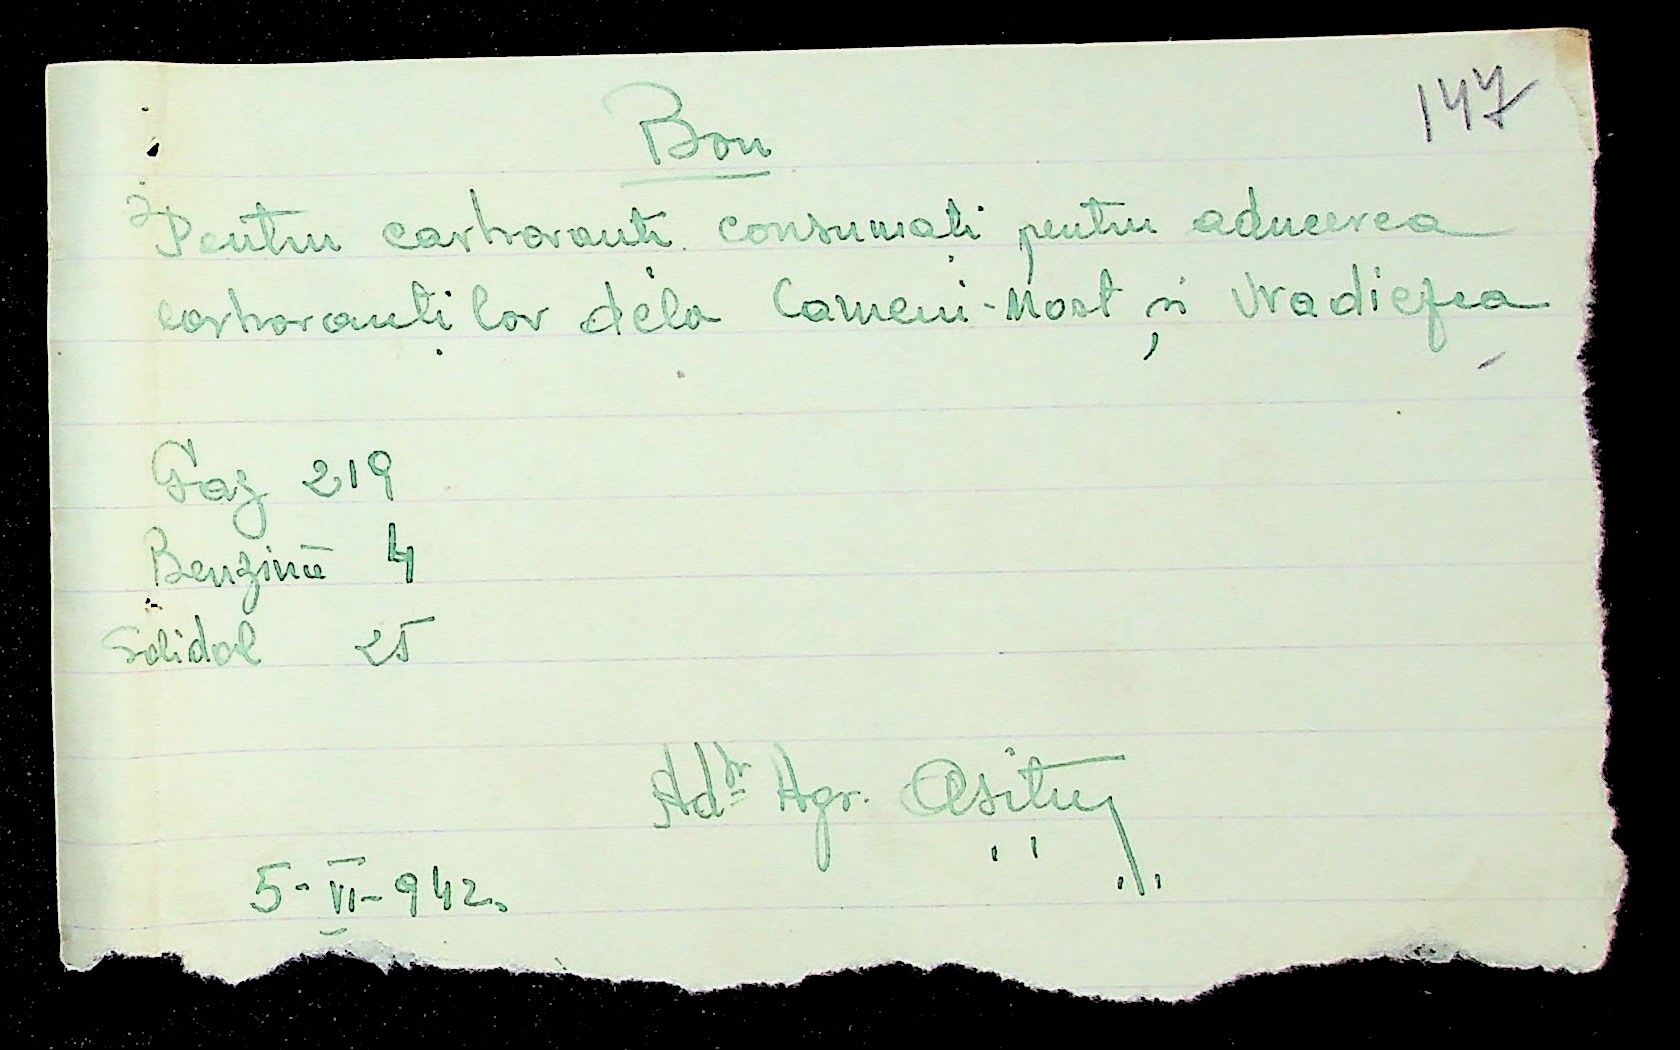 147
Bon
Pentru carboranti consumati pentru aducerea
carboranților dela Cameni-Most și Vradiefca
Gaz 219
Benzină 4
Solidol 25
Ad-tr Agr.
5-VI-942.